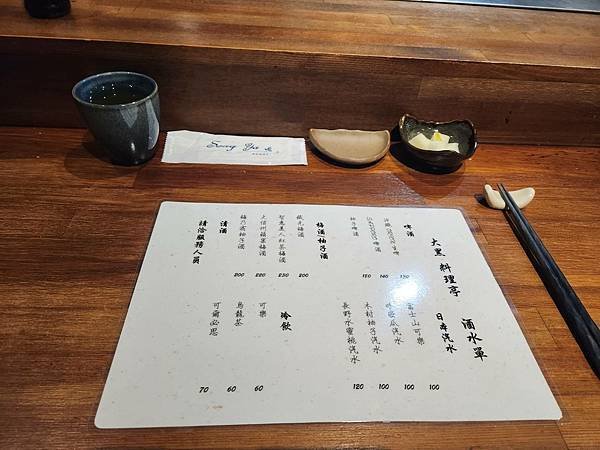 Song Ya
大黑 料理亭 酒水單
啤酒
150
140
柚子啤酒 150
梅酒/柚子酒
蔵元梅酒 200
智惠美人紅茶梅酒 230
大信州蘋果梅酒 220
梅乃宿柚子酒 200
清酒
請洽服務人員
日本汽水
富士山可樂 100
哈蜜瓜汽水 100
木村柚子汽水 100
長野水蜜桃汽水 120
冷飲
可樂 60
烏龍茶 60
可爾必思 70